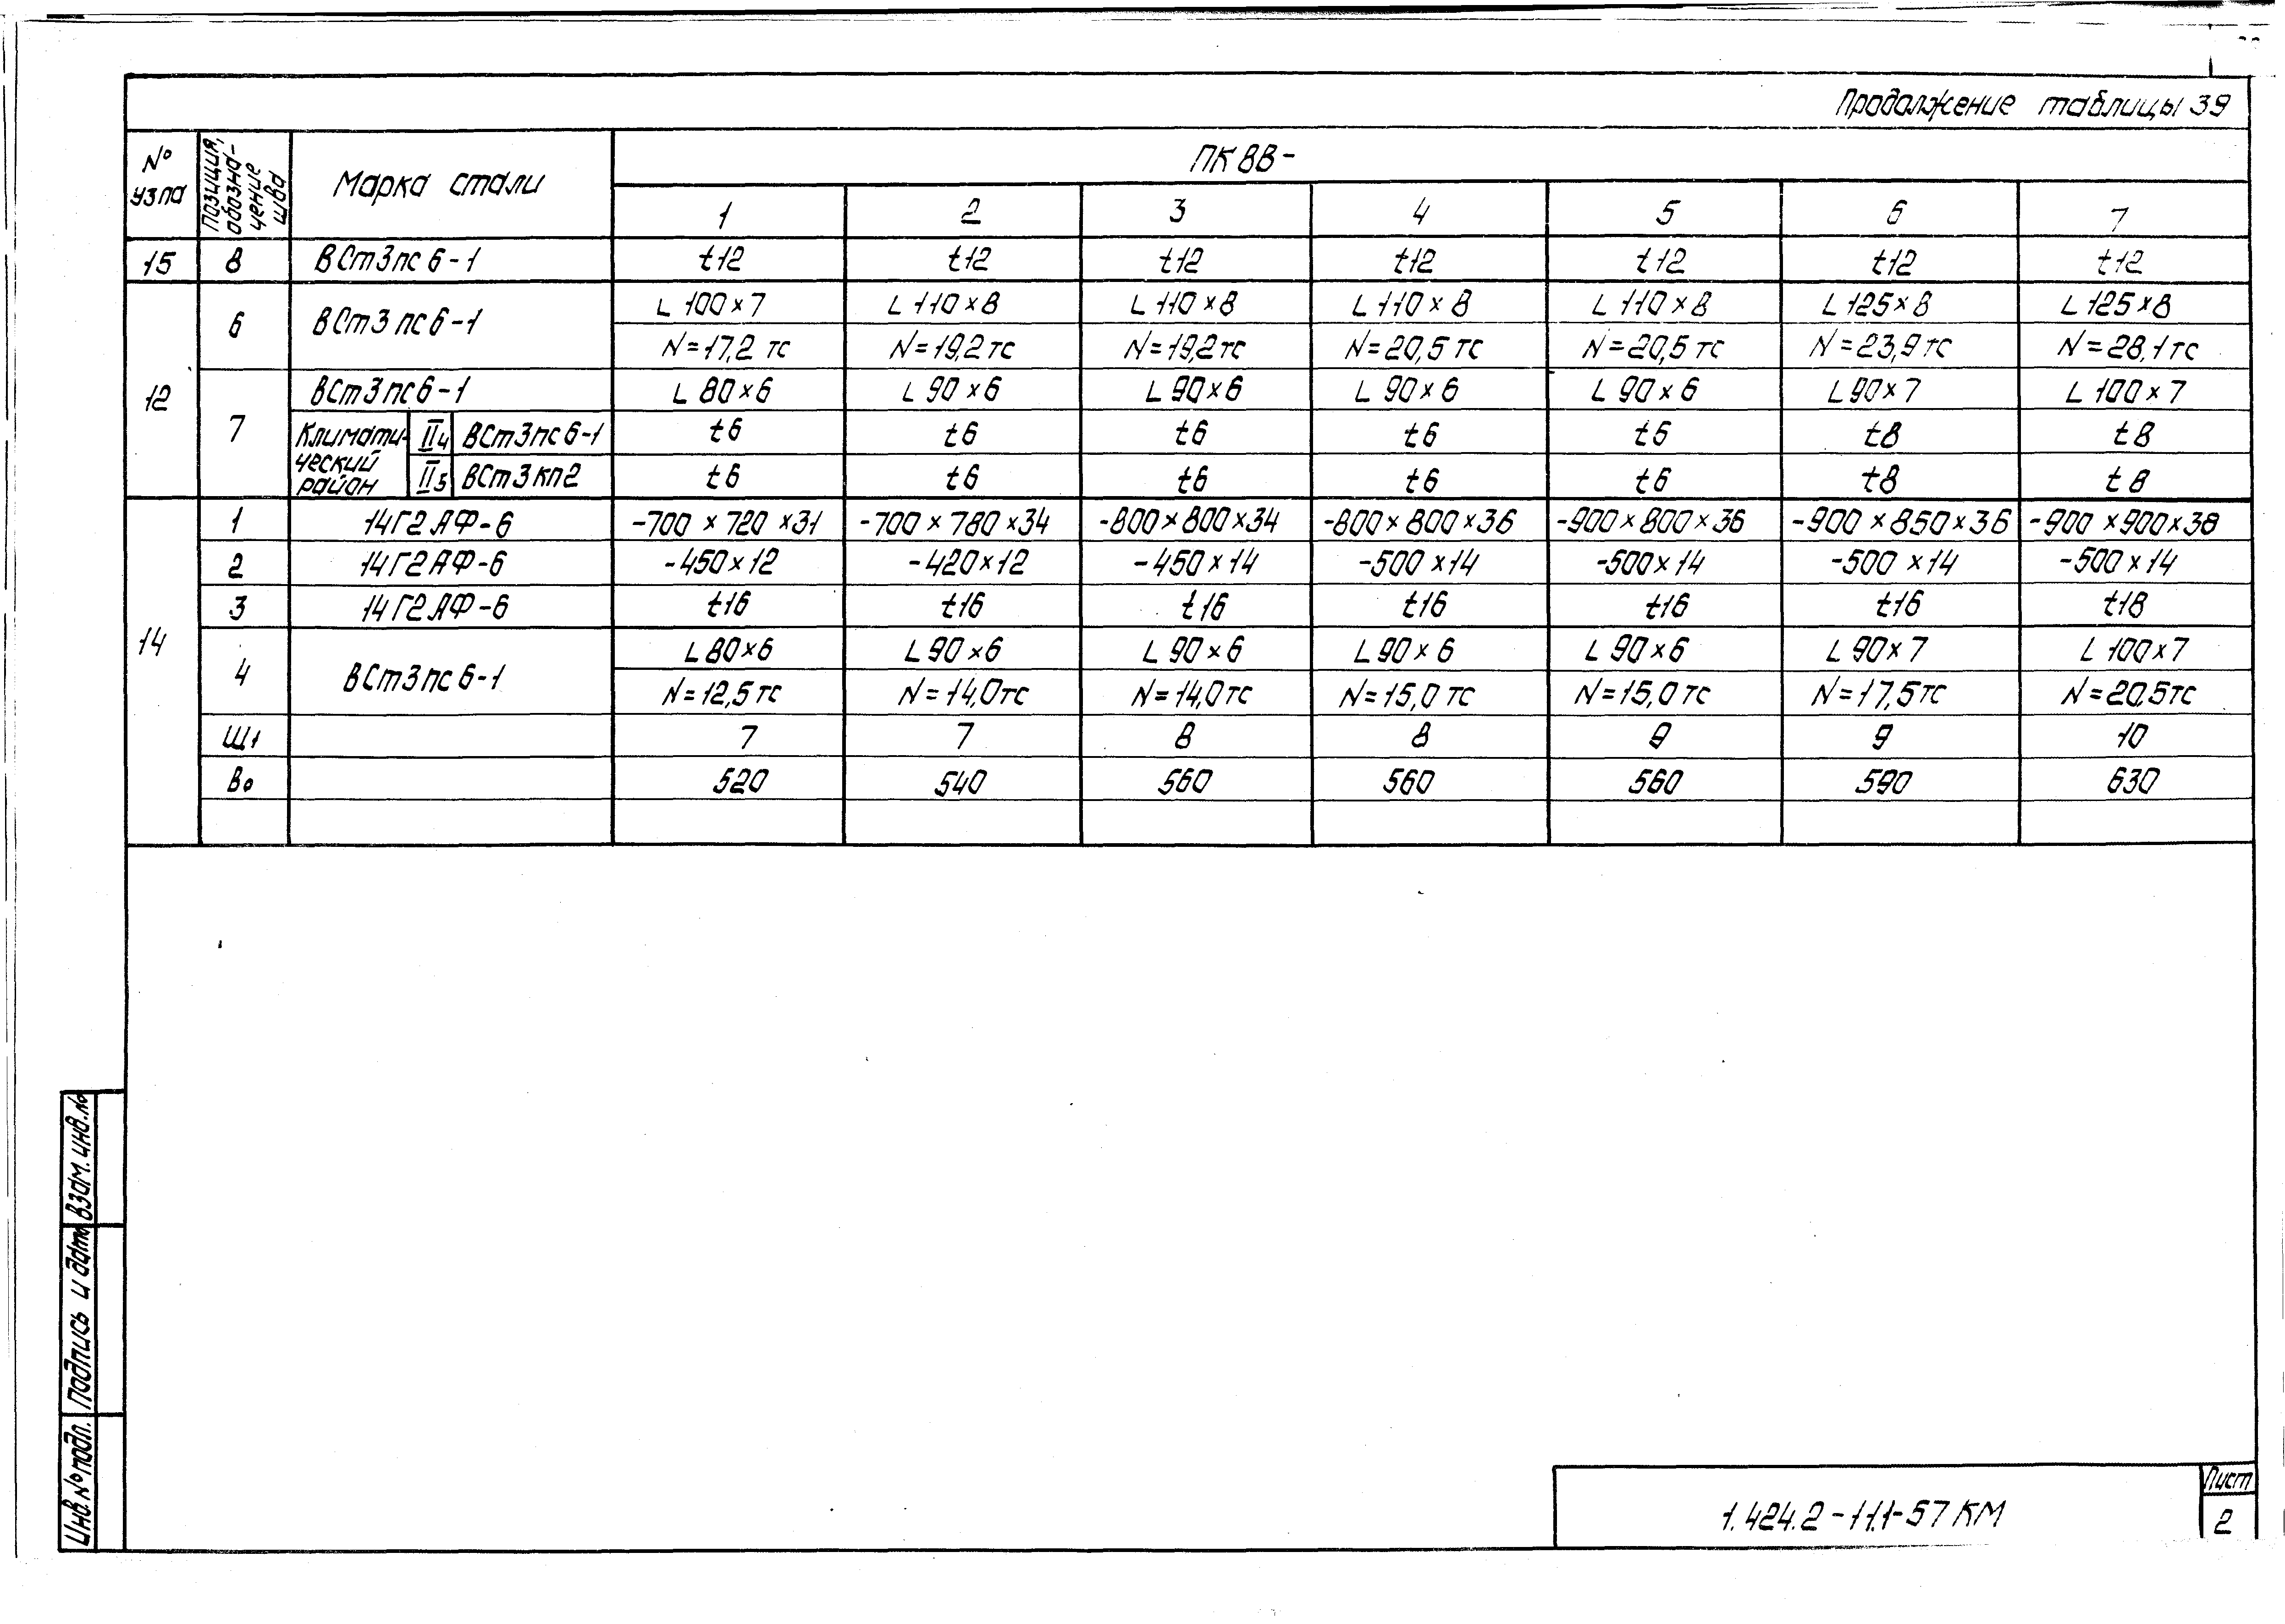 Продолжение таблицы 39
№ узла | Позиция, обозначение шва | Марка стали | ПК 8В-
1 | 2 | 3 | 4 | 5 | 6 | 7
15 | 8 | ВСт3пс6-1 | t12 | t12 | t12 | t12 | t12 | t12 | t12
12 | 6 | ВСт3пс6-1 | L 100×7 | L 110×8 | L 110×8 | L 110×8 | L 110×8 | L 125×8 | L 125×8
N=17,2 тс | N=19,2 тс | N=19,2 тс | N=20,5 тс | N=20,5 тс | N=23,9 тс | N=28,1 тс
7 | ВСт3пс6-1 | L 80×6 | L 90×6 | L 90×6 | L 90×6 | L 90×6 | L 90×7 | L 100×7
Климатический район | II4 | ВСт3пс6-1 | t6 | t6 | t6 | t6 | t6 | t8 | t8
II5 | ВСт3кп2 | t6 | t6 | t6 | t6 | t6 | t8 | t8
14 | 1 | 14Г2АФ-6 | -700×720×31 | -700×780×34 | -800×800×34 | -800×800×36 | -900×800×36 | -900×850×36 | -900×900×38
2 | 14Г2АФ-6 | -450×12 | -420×12 | -450×14 | -500×14 | -500×14 | -500×14 | -500×14
3 | 14Г2АФ-6 | t16 | t16 | t16 | t16 | t16 | t16 | t18
4 | ВСт3пс6-1 | L 80×6 | L 90×6 | L 90×6 | L 90×6 | L 90×6 | L 90×7 | L 100×7
N=12,5 тс | N=14,0 тс | N=14,0 тс | N=15,0 тс | N=15,0 тс | N=17,5 тс | N=20,5 тс
Ш1 | 7 | 7 | 8 | 8 | 9 | 9 | 10
В0 | 520 | 540 | 560 | 560 | 560 | 590 | 630
Инв. № подл. | Подпись и дата | Взам. инв. №
1.424.2-11.1-57 КМ
Лист
2